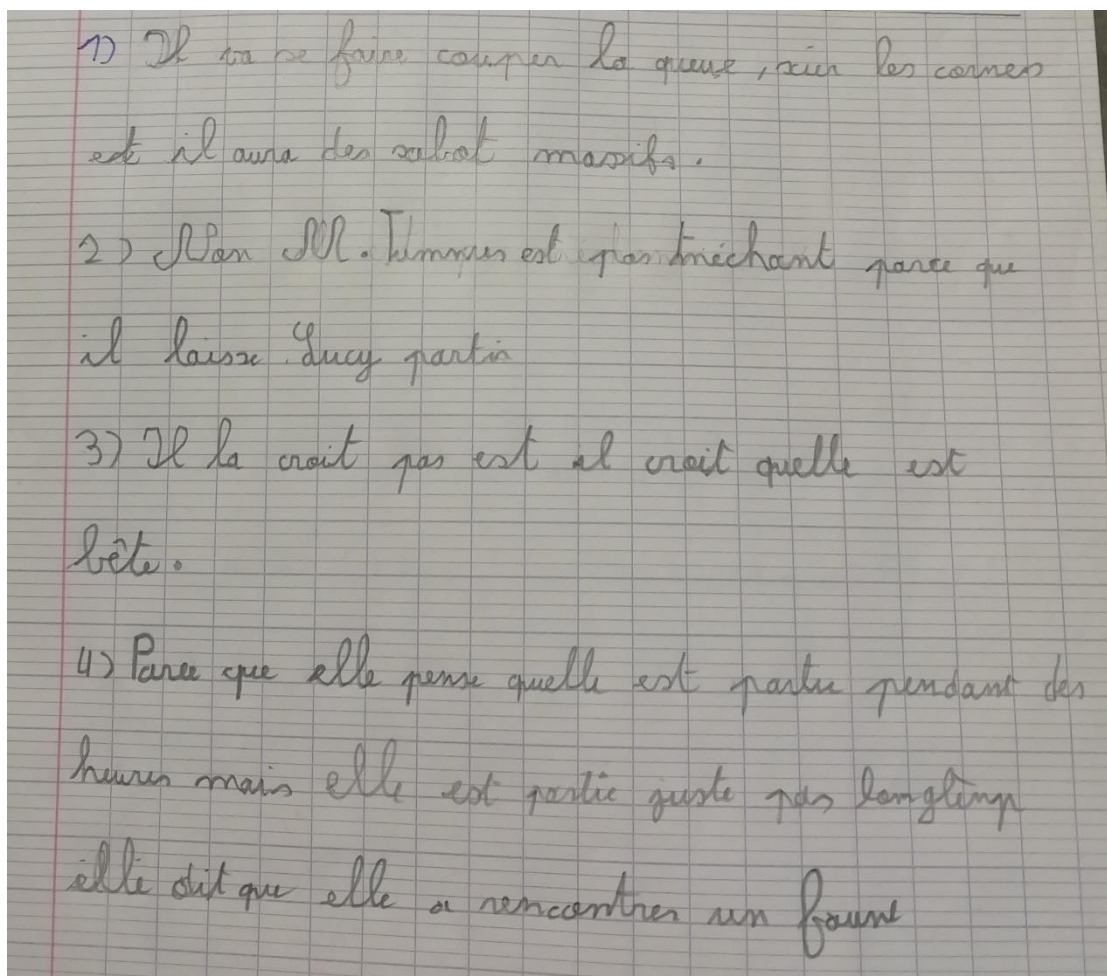 1) Il va se faire couper la queue, scier les cornes
est il aura des sabot massifs.
2) Non M. Tumnus est pas méchant parce que
il laisse Lucy partir
3) Il la croit pas est il croit quelle est
bête.
4) Parce que elle pense quelle est partie pendant des
heures mais elle est partie juste pas longtemp
elle dit que elle a rencontrer un faune